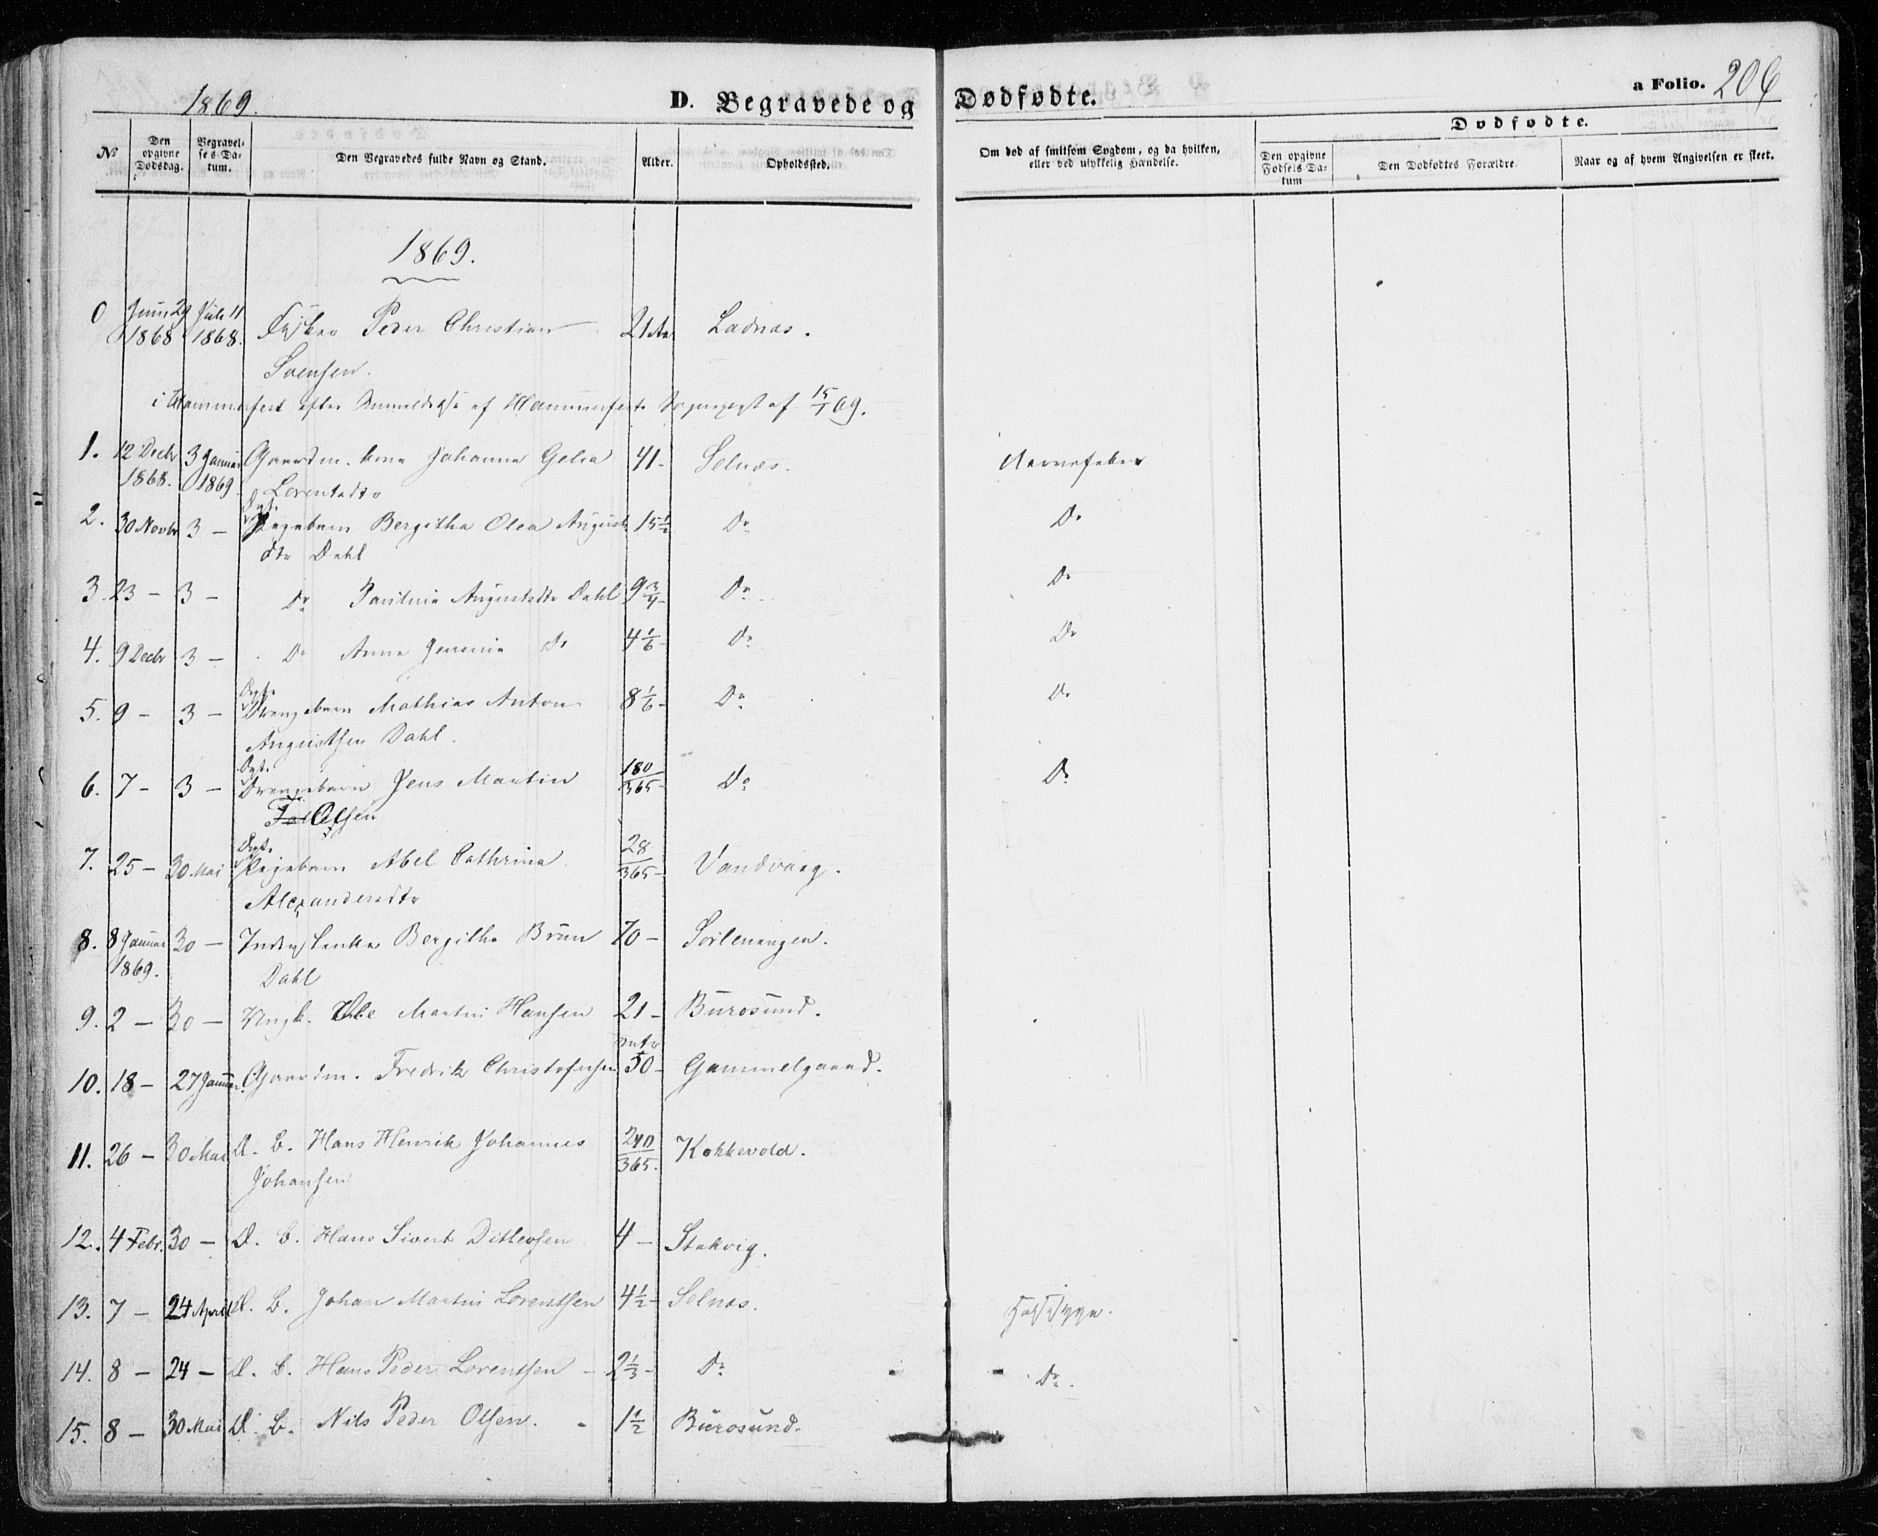 1869.
D. Begravede og Dødfødte.
a Folio. 206
No
Den opgivne Dødsdag.
Begravelses-Datum.
Den Begravedes fulde Navn og Stand.
Alder.
Opholdssted.
Om død af smitsom Sygdom, og da hvilken, eller ved ulykkelig Hændelse.
Dødfødte.
Den opgivne Fødsels Datum
Den Dødfødtes Forældre
Naar og af hvem Angivelsen er skeet.
1869.
0 Juni 29 1868 Juli 11 1868. Peder Christian 21 Aar Ladnæs.
Svensen.
i Hammerfest efter Anmeldelse af Hammerfest Sognepræst af 15/1 69.
1. 12 Decbr 1868. 3 Januar 1869 Gaardm. kone Johanna Gelea 41 - Selnæs. Nervefeber
Lorentsdtr
2. 30 Novbr 3 - Dgt. Pigebarn Bergitha Olea August 15 1/2 Do Do
dtr Dahl
3. 23 - 3 - Do Paulina Augustsdtr Dahl 9 3/4 - Do Do
4. 9 Decbr 3 - Do Anna Jensine Do 4 1/6 - Do Do
5. 9 - 3 - Døgt. Drengebarn Mathias Anton 8 1/6 - Do Do
Augustsen Dahl.
6. 7 - 3 - Døgt. Drengebarn Jens Martin 180/365 - Do Do
Olsen
7. 25 - 30 Mai Døgt. Pigebarn Abel Cathrina 28/365 - Vandvaag.
Alexandersdtr
8. 8 Januar 1869. 30 - Enke Bergitha Brun 70 - Sørlenangen.
Dahl
9. 2 - 30 - Ungk. Ole Martin Hansen 21 - Burøsund.
10. 18 - 27 Januar Gaardm. Fredrik Christofersen 50 - Gammelgaard.
11. 26 - 30 Mai D. B. Hans Henrik Johannes 240/365. Kokkevold.
Johansen
12. 4 Febr. 30 - D. B. Hans Sivert Ditlevsen 4 - Stakvig.
13. 7 - 24 April D. B. Johan Martin Lorentsen 4 1/2 - Selnæs. Halssyge.
14. 8 - 24 - D. B. Hans Peder Lorentsen - 2 1/3 - Do Do.
15. 8 - 30 Mai D. B. Nils Peder Olsen. - 1 1/2 Burøsund.